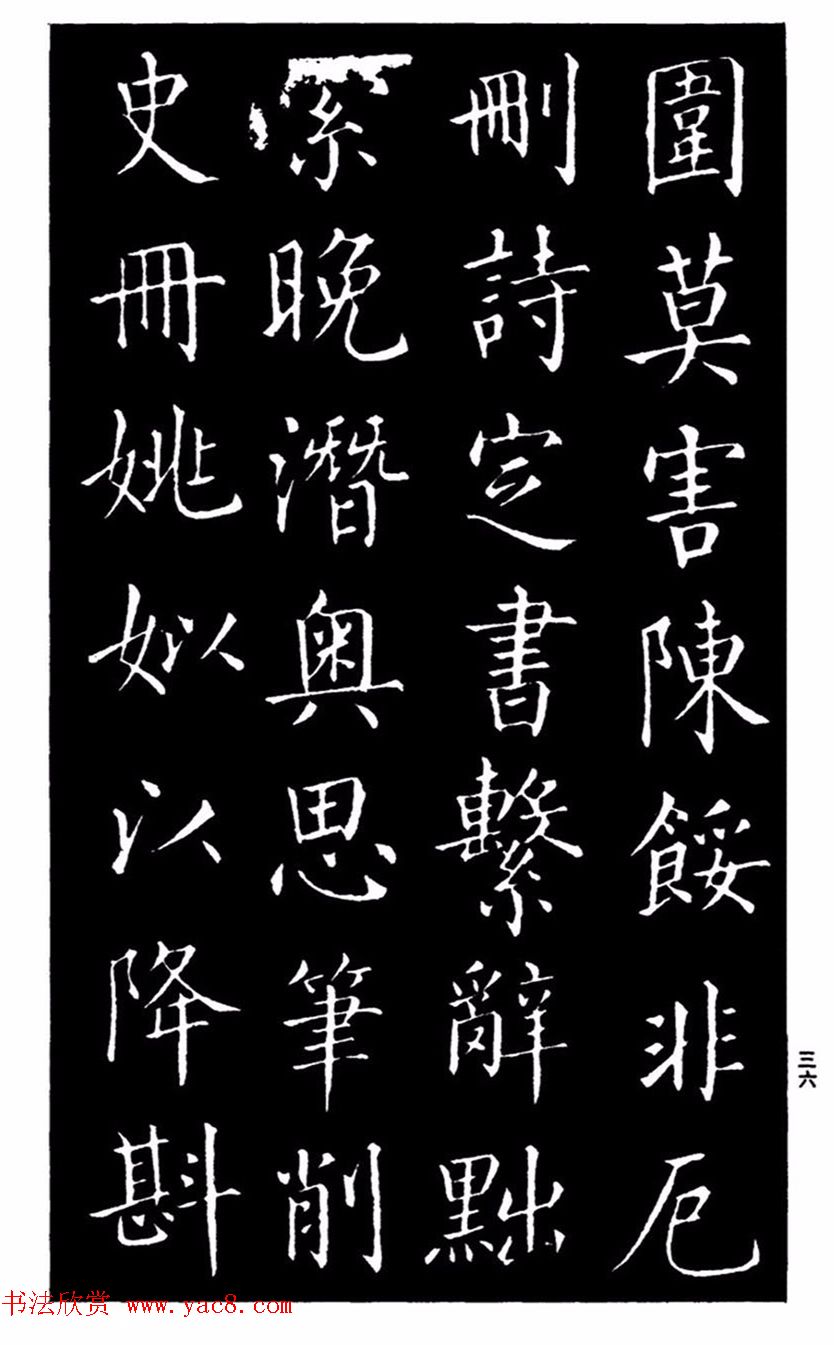 圍莫害陳餒非厄
刪詩定書繫辭黜
索晚潛奧思筆削
史冊姚姒以降斟
三六
书法欣赏 www.yac8.com